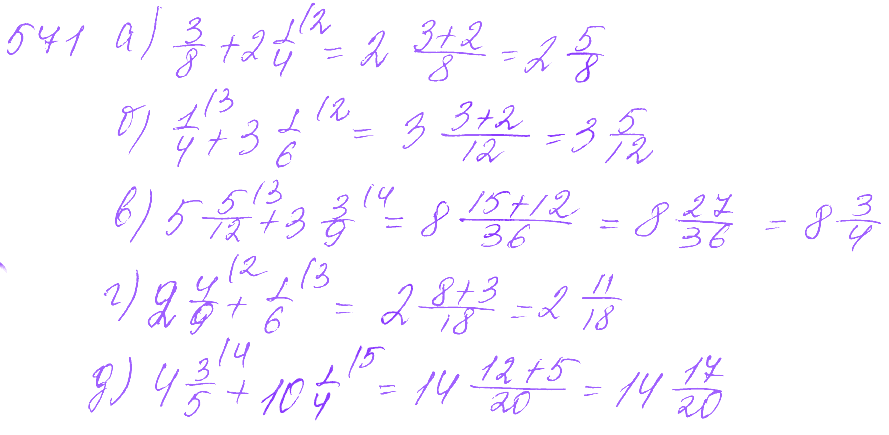 571 а) 3/8 + 2 1/4 /2 = 2 (3+2)/8 = 2 5/8
б) 1/4 /3 + 3 1/6 /2 = 3 (3+2)/12 = 3 5/12
в) 5 5/12 /3 + 3 3/9 /4 = 8 (15+12)/36 = 8 27/36 = 8 3/4
г) 2 4/9 /2 + 1/6 /3 = 2 (8+3)/18 = 2 11/18
д) 4 3/5 /4 + 10 1/4 /5 = 14 (12+5)/20 = 14 17/20